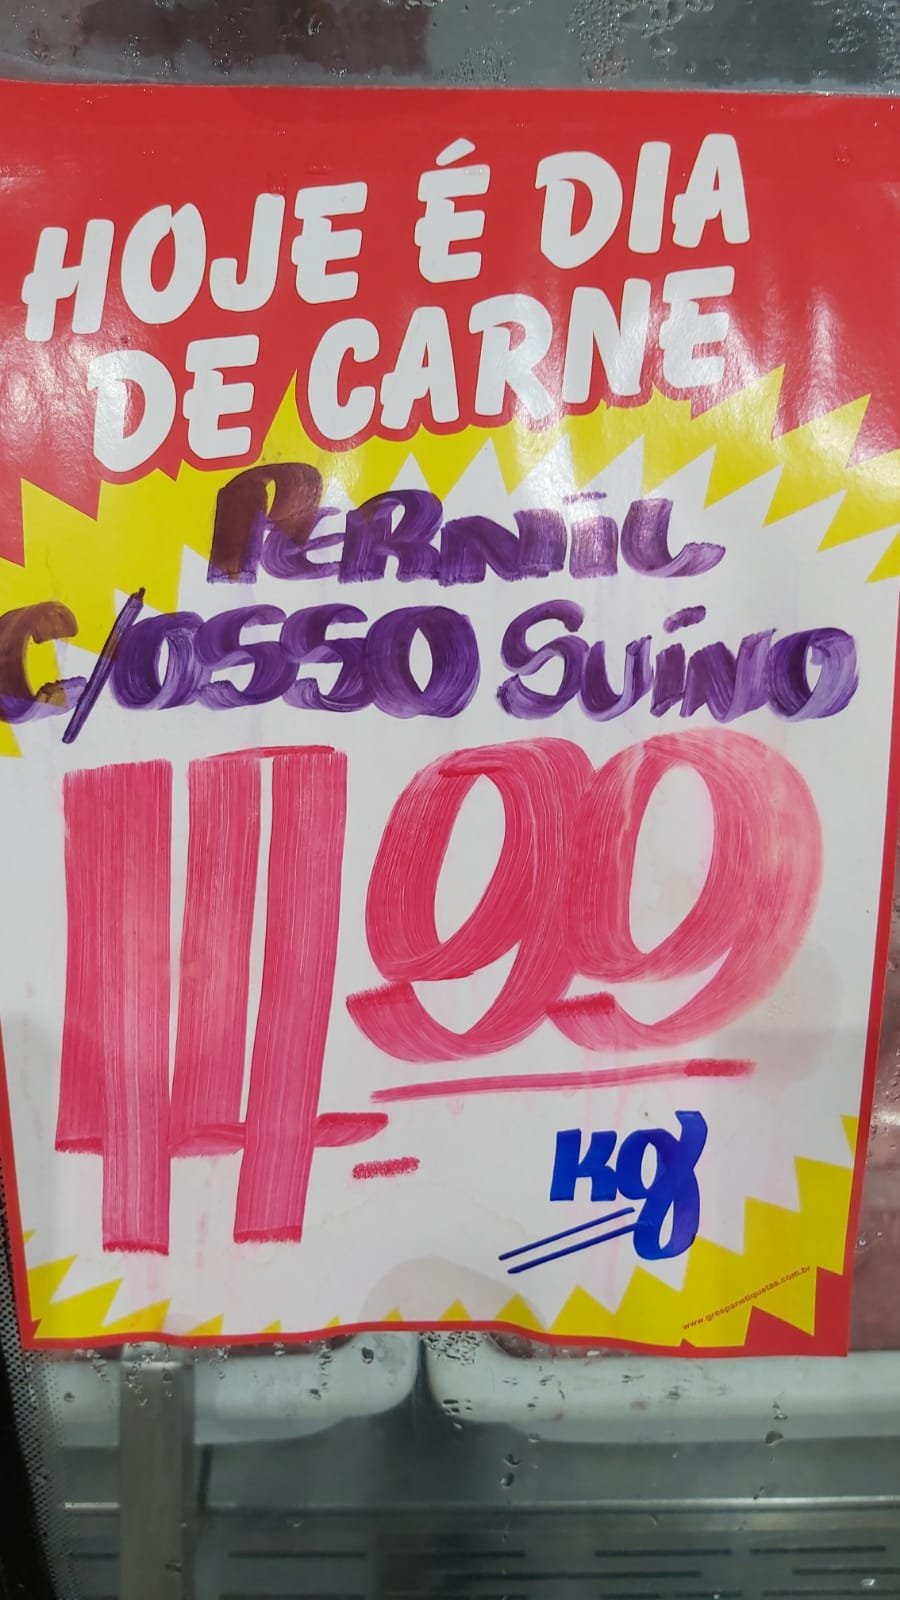 HOJE É DIA
DE CARNE
PERNIL
C/OSSO SUÍNO
KG
www.grespanetiquetas.com.br